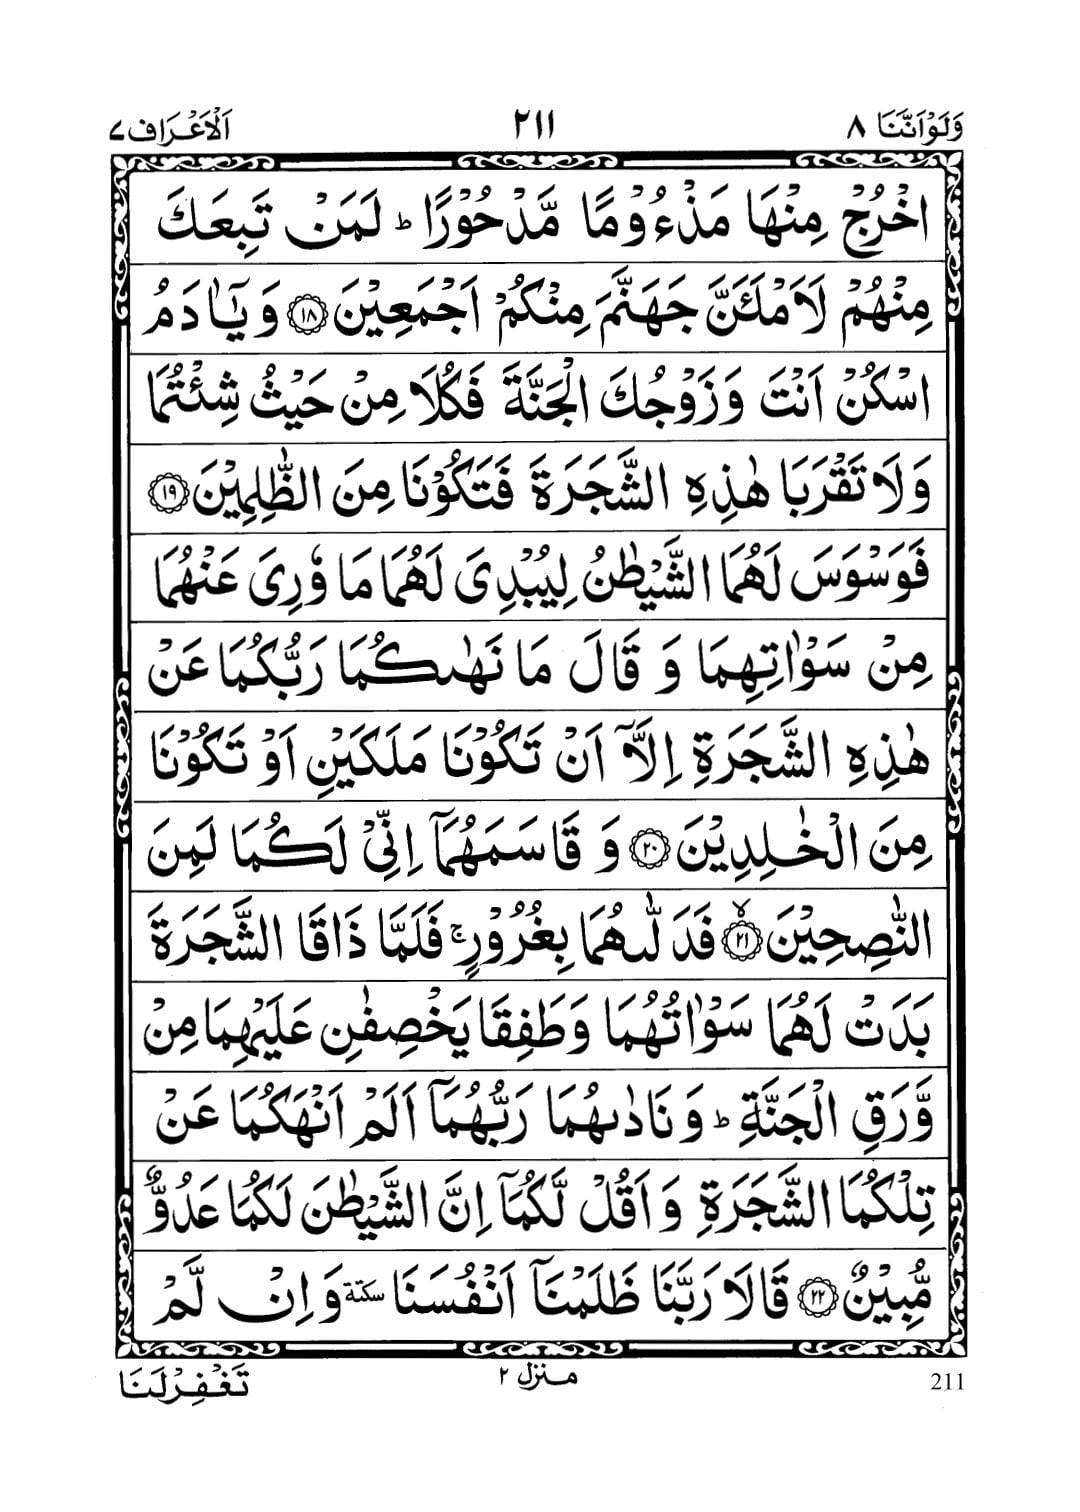 وَلَوْاَنَّنَا ٨
٢١١
اَلْاَعْرَاف ٧
اخْرُجْ مِنْهَا مَذْءُوْمًا مَّدْحُوْرًا ؕ لَمَنْ تَبِعَكَ
مِنْهُمْ لَاَمْلَـَٔنَّ جَهَنَّمَ مِنْكُمْ اَجْمَعِيْنَ ۝١٨ وَ يٰۤاٰدَمُ
اسْكُنْ اَنْتَ وَ زَوْجُكَ الْجَنَّةَ فَكُلَا مِنْ حَيْثُ شِئْتُمَا
وَلَا تَقْرَبَا هٰذِهِ الشَّجَرَةَ فَتَكُوْنَا مِنَ الظّٰلِمِيْنَ ۝١٩
فَوَسْوَسَ لَهُمَا الشَّيْطٰنُ لِيُبْدِىَ لَهُمَا مَا وٗرِىَ عَنْهُمَا
مِنْ سَوْاٰتِهِمَا وَ قَالَ مَا نَهٰىكُمَا رَبُّكُمَا عَنْ
هٰذِهِ الشَّجَرَةِ اِلَّاۤ اَنْ تَكُوْنَا مَلَكَيْنِ اَوْ تَكُوْنَا
مِنَ الْخٰلِدِيْنَ ۝٢٠ وَ قَاسَمَهُمَاۤ اِنِّىْ لَكُمَا لَمِنَ
النّٰصِحِيْنَ ۝٢١ ۙ فَدَلّٰىهُمَا بِغُرُوْرٍ ۚ فَلَمَّا ذَاقَا الشَّجَرَةَ
بَدَتْ لَهُمَا سَوْاٰتُهُمَا وَطَفِقَا يَخْصِفٰنِ عَلَيْهِمَا مِنْ
وَّرَقِ الْجَنَّةِ ؕ وَ نَادٰىهُمَا رَبُّهُمَاۤ اَلَمْ اَنْهَكُمَا عَنْ
تِلْكُمَا الشَّجَرَةِ وَ اَقُلْ لَّكُمَاۤ اِنَّ الشَّيْطٰنَ لَكُمَا عَدُوٌّ
مُّبِيْنٌ ۝٢٢ قَالَا رَبَّنَا ظَلَمْنَاۤ اَنْفُسَنَا سكتة وَ اِنْ لَّمْ
تَغْفِرْلَنَا
منزل ٢
211